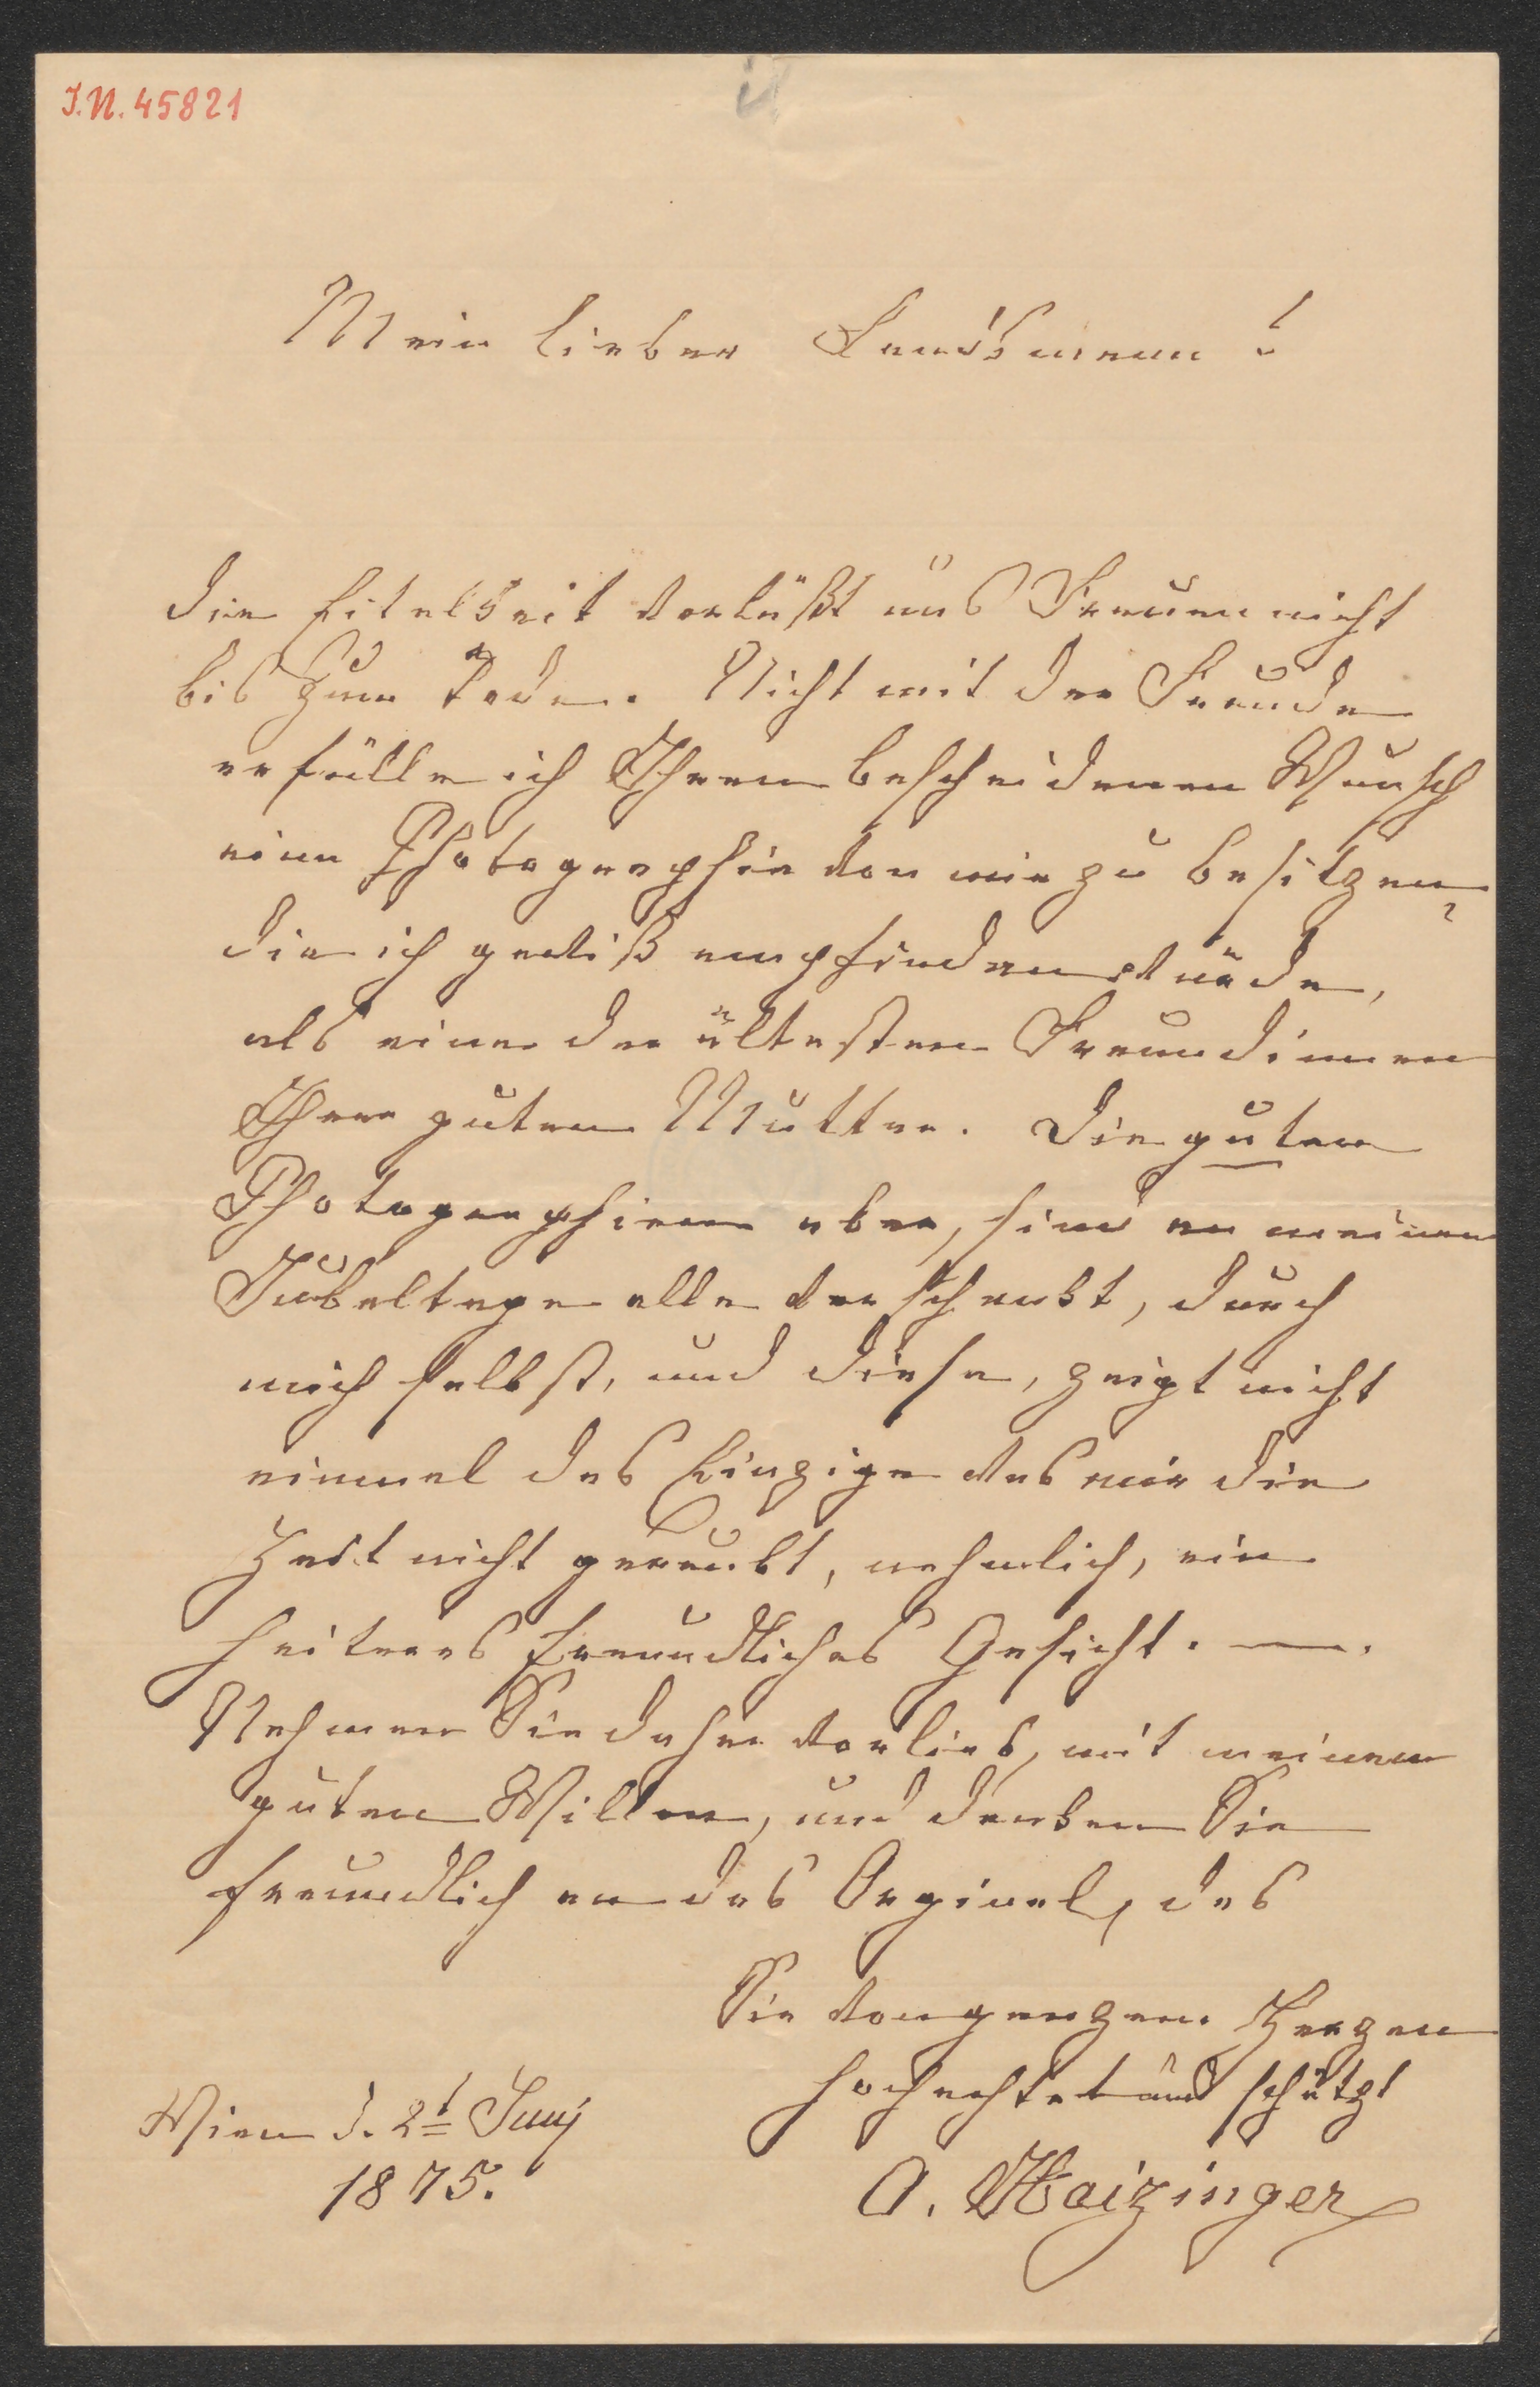 I.N. 45821
Mein lieber Landsmann!
Die Eitelkeit verläßt uns Frauen nicht
bis zum Tode. Nicht mit der Freude
erfülle ich Ihren bescheidenen Wunsch
eine Photographie von mir zu besitzen,
die ich gewiß empfinden würde,
als eine der ältesten Freundinnen
Ihrer guten Mutter. Die guten
Photographien aber, sind an meinem
Jubeltage alle verschenkt, durch
mich selbst, und diese, zeigt nicht
einmal das Einzige was mir die
Zeit nicht geraubt, nehmlich, ein
heiteres freundliches Gesicht. —.
Nehmen Sie daher vorlieb, mit meinem
guten Willen, und denken Sie
freundlich an das Orginal, das
Sie von ganzem Herzen
hochachtet und schätzt
Wien d. 2t Junj
1875.
A. Haizinger